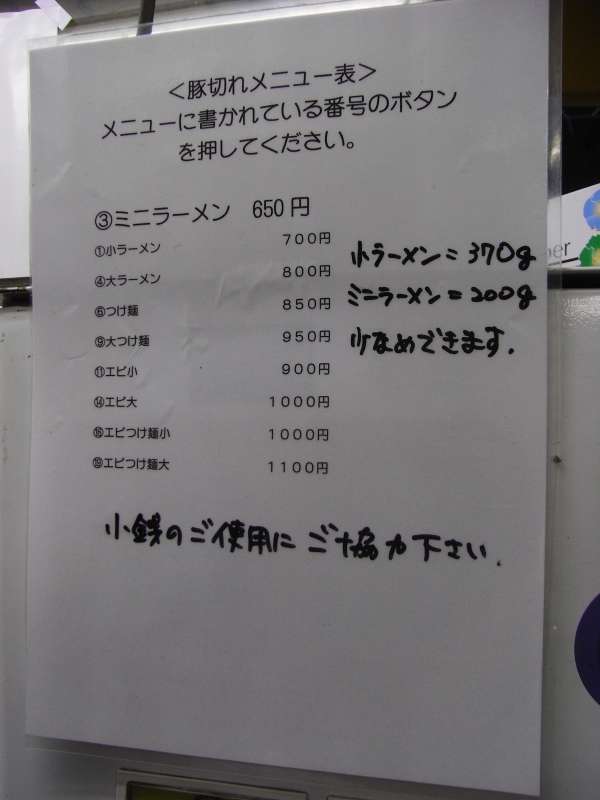 <豚切れメニュー表>
メニューに書かれている番号のボタン
を押してください。
③ミニラーメン 650円
①小ラーメン 700円
④大ラーメン 800円
⑥つけ麺 850円
⑨大つけ麺 950円
⑪エビ小 900円
⑭エビ大 1000円
⑯エビつけ麺小 1000円
⑲エビつけ麺大 1100円
小ラーメン=370g
ミニラーメン=200g
少なめできます.
小銭のご使用にご協力下さい.